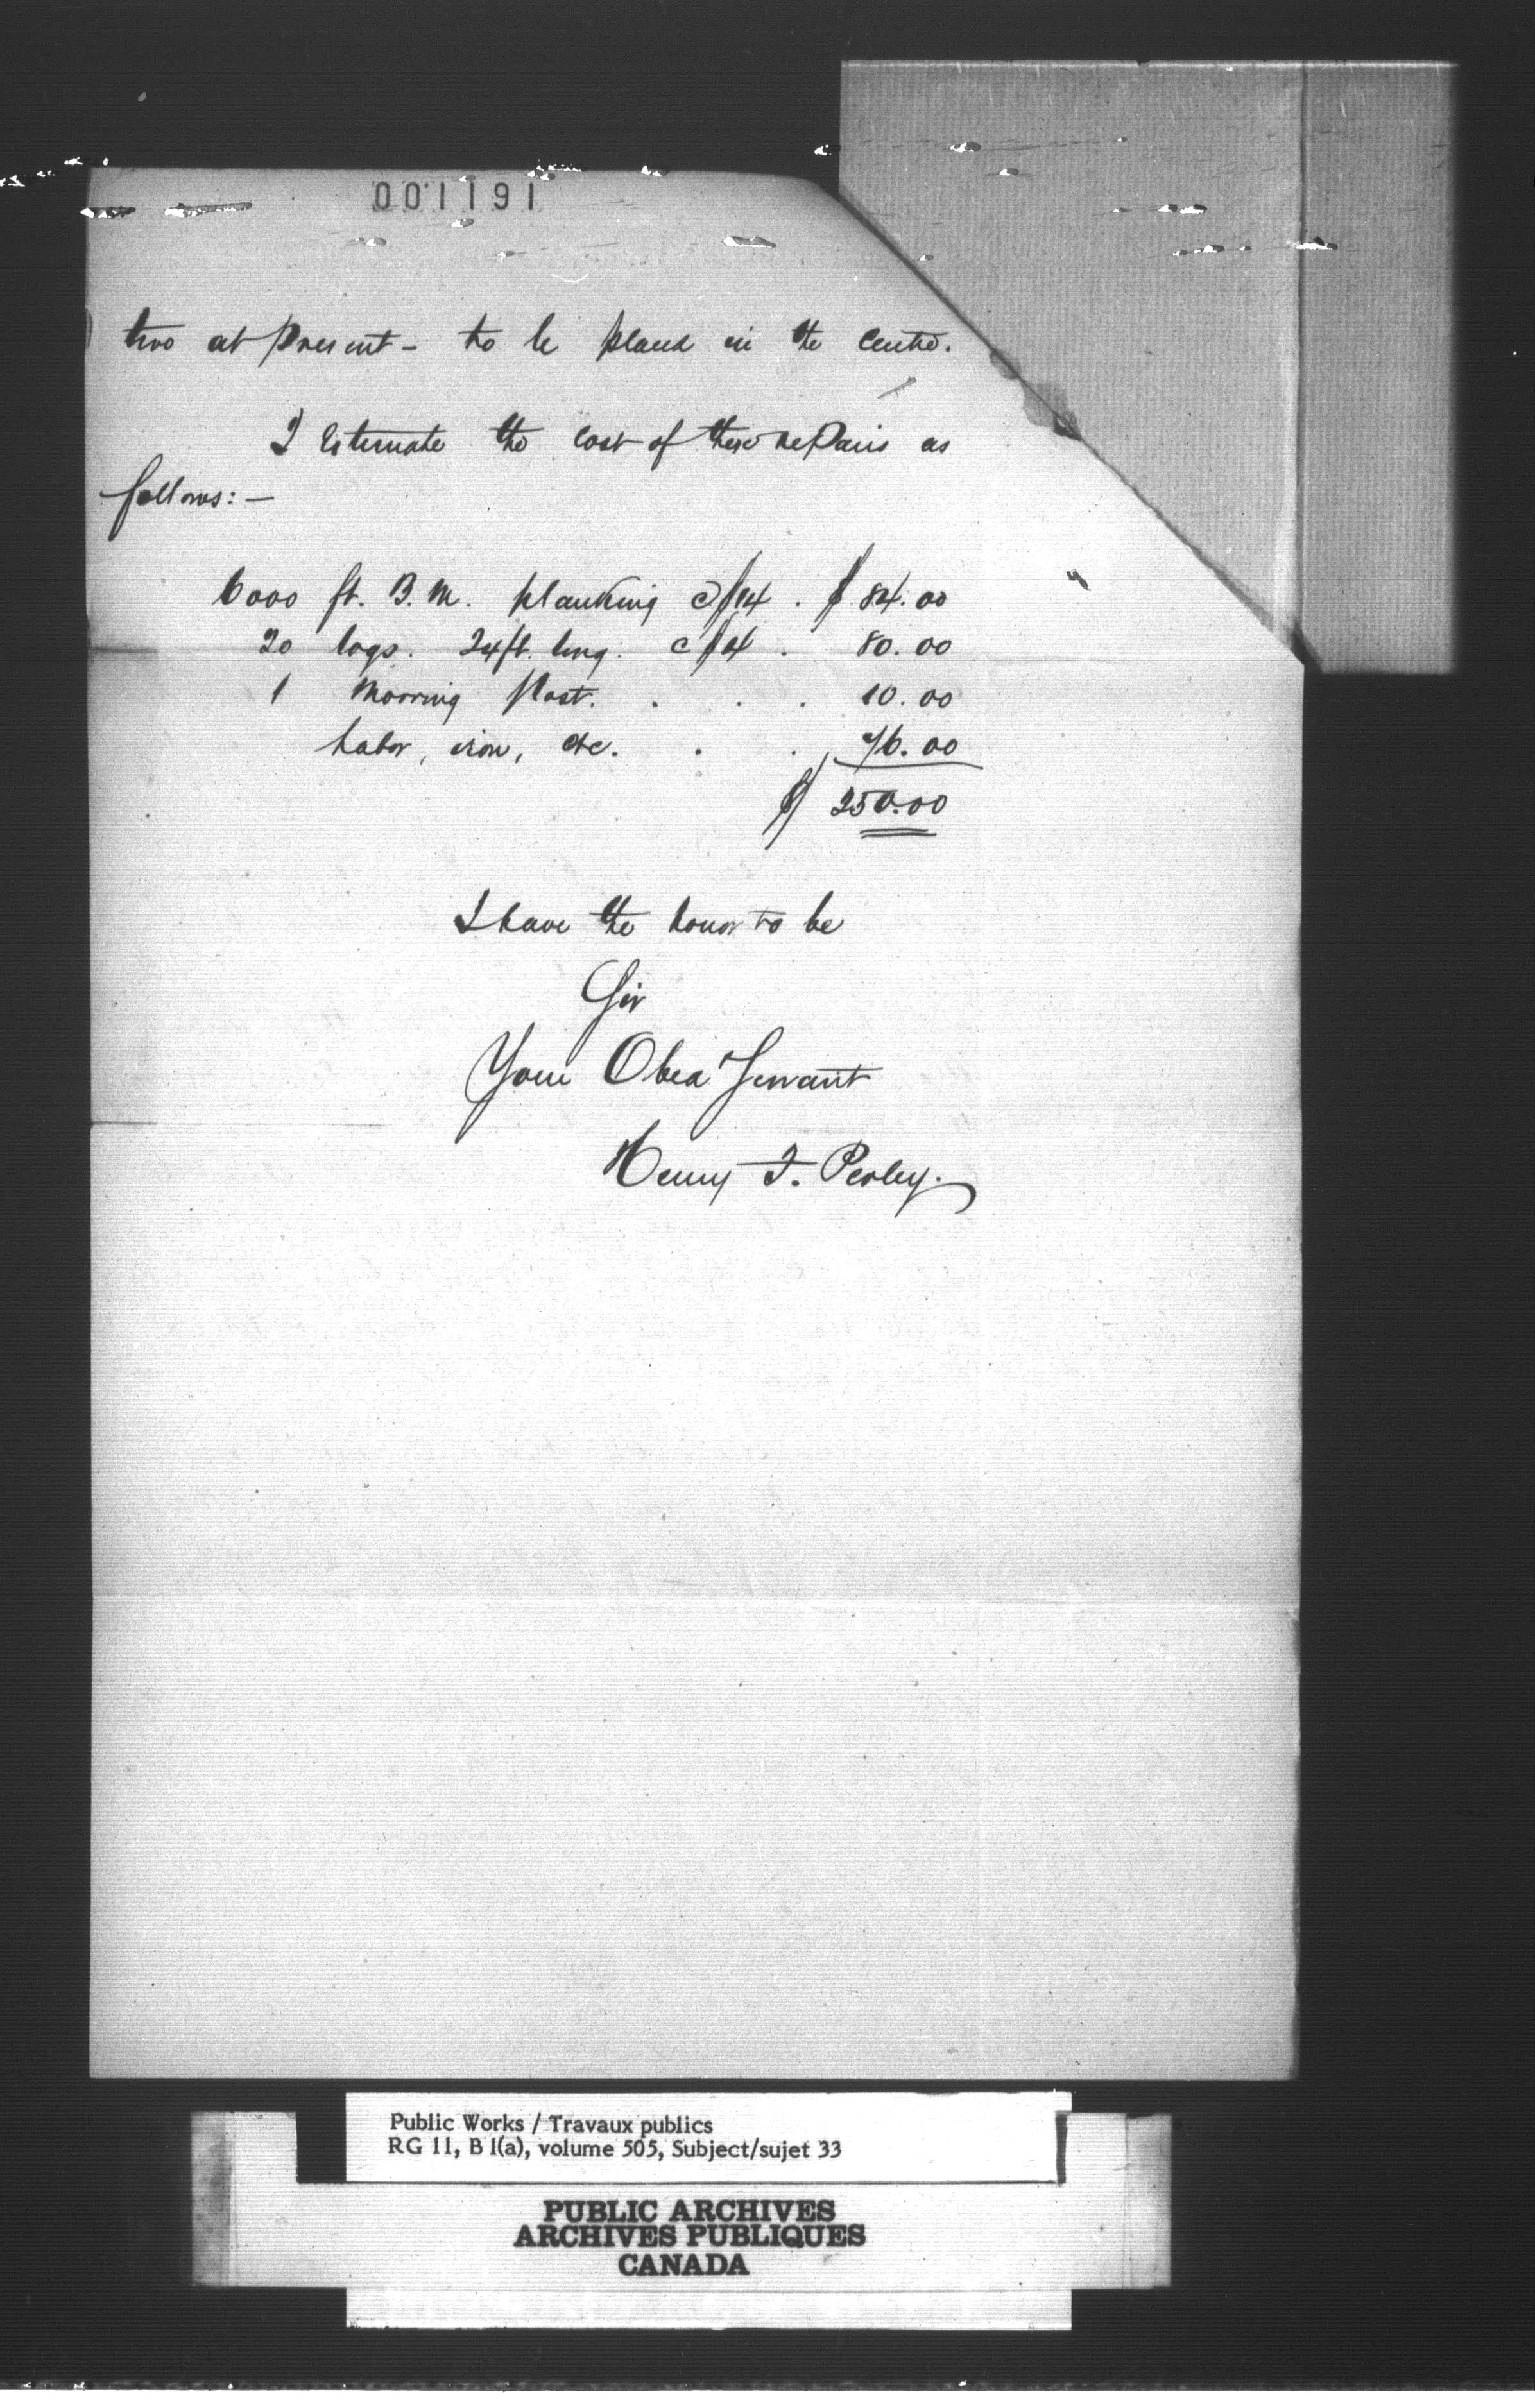 001191
two at present - to be placed in the centre.
I Estimate the cost of these repairs as
follows: -
6000 ft. B.M. planking @ $14 . $ 84.00
20 logs. 24 ft. long. @ $4 . 80.00
1 Mooring Post. . . . 10.00
Labor, iron, &c. . . 76.00
$ 250.00
I have the honor to be
Sir
Your Obed Servant
Henry F. Perley.
Public Works / Travaux publics
RG 11, B 1(a), volume 505, Subject/sujet 33
PUBLIC ARCHIVES
ARCHIVES PUBLIQUES
CANADA